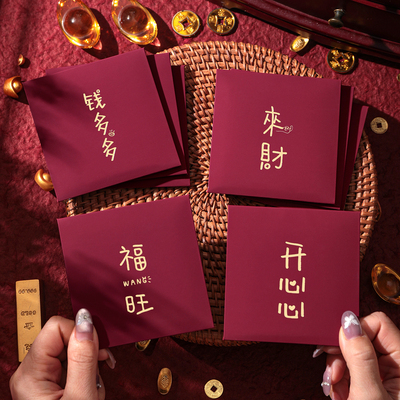 钱多多
來財
福
WANG
旺
开心心